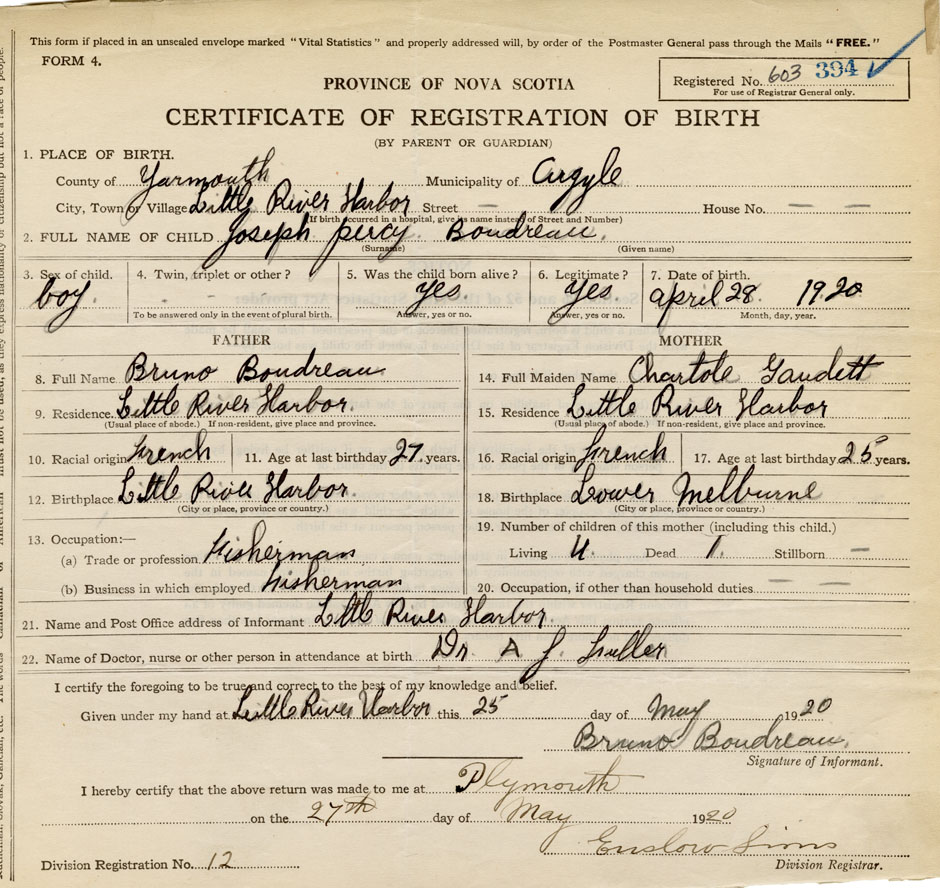 This form if placed in an unsealed envelope marked "Vital Statistics" and properly addressed will, by order of the Postmaster General pass through the Mails "FREE."
FORM 4.
Registered No. 603 394
For use of Registrar General only.
PROVINCE OF NOVA SCOTIA
CERTIFICATE OF REGISTRATION OF BIRTH
(BY PARENT OR GUARDIAN)
1. PLACE OF BIRTH.
County of Yarmouth Municipality of Argyle
City, Town or Village Little River Harbor Street — House No. — —
(If birth occurred in a hospital, give its name instead of Street and Number)
2. FULL NAME OF CHILD Joseph percy Boudreau.
(Surname) (Given name)
3. Sex of child. 4. Twin, triplet or other? 5. Was the child born alive? 6. Legitimate? 7. Date of birth.
boy. - - yes. yes. april 28 1920
To be answered only in the event of plural birth. Answer, yes or no. Answer, yes or no. Month, day, year.
FATHER MOTHER
8. Full Name Bruno Boudreau 14. Full Maiden Name Chartole Gaudett
9. Residence. Little River Harbor. 15. Residence Little River Harbor
(Usual place of abode.) If non-resident, give place and province. (Usual place of abode.) If non-resident, give place and province.
10. Racial origin French 11. Age at last birthday 27. years. 16. Racial origin French 17. Age at last birthday 25 years.
12. Birthplace Little River Harbor. 18. Birthplace Lower Melburne
(City or place, province or country.) (City or place, province or country.)
13. Occupation:— 19. Number of children of this mother (including this child.)
(a) Trade or profession Fisherman Living 4. Dead 1. Stillborn —
(b) Business in which employed Fisherman 20. Occupation, if other than household duties — —
21. Name and Post Office address of Informant Little River Harbor.
22. Name of Doctor, nurse or other person in attendance at birth Dr. A J. Fuller
I certify the foregoing to be true and correct to the best of my knowledge and belief.
Given under my hand at Little River Harbor this 25 day of May 1920
Bruno Boudreau.
Signature of Informant.
I hereby certify that the above return was made to me at Plymouth
on the 27th day of May 1920
Enslow Sims
Division Registration No. 12 Division Registrar.